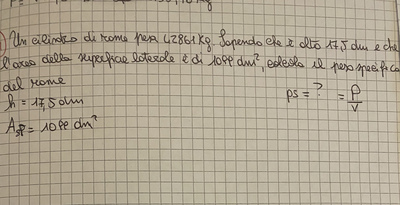 Un cilindro di rame pesa 42861 Kg. Sapendo che è alto 17,5 dm e che
l'area della superficie laterale è di 1099 dm², calcola il peso specifico
del rame
h = 17,5 dm
ps = ? = P/V
A = 1099 dm²